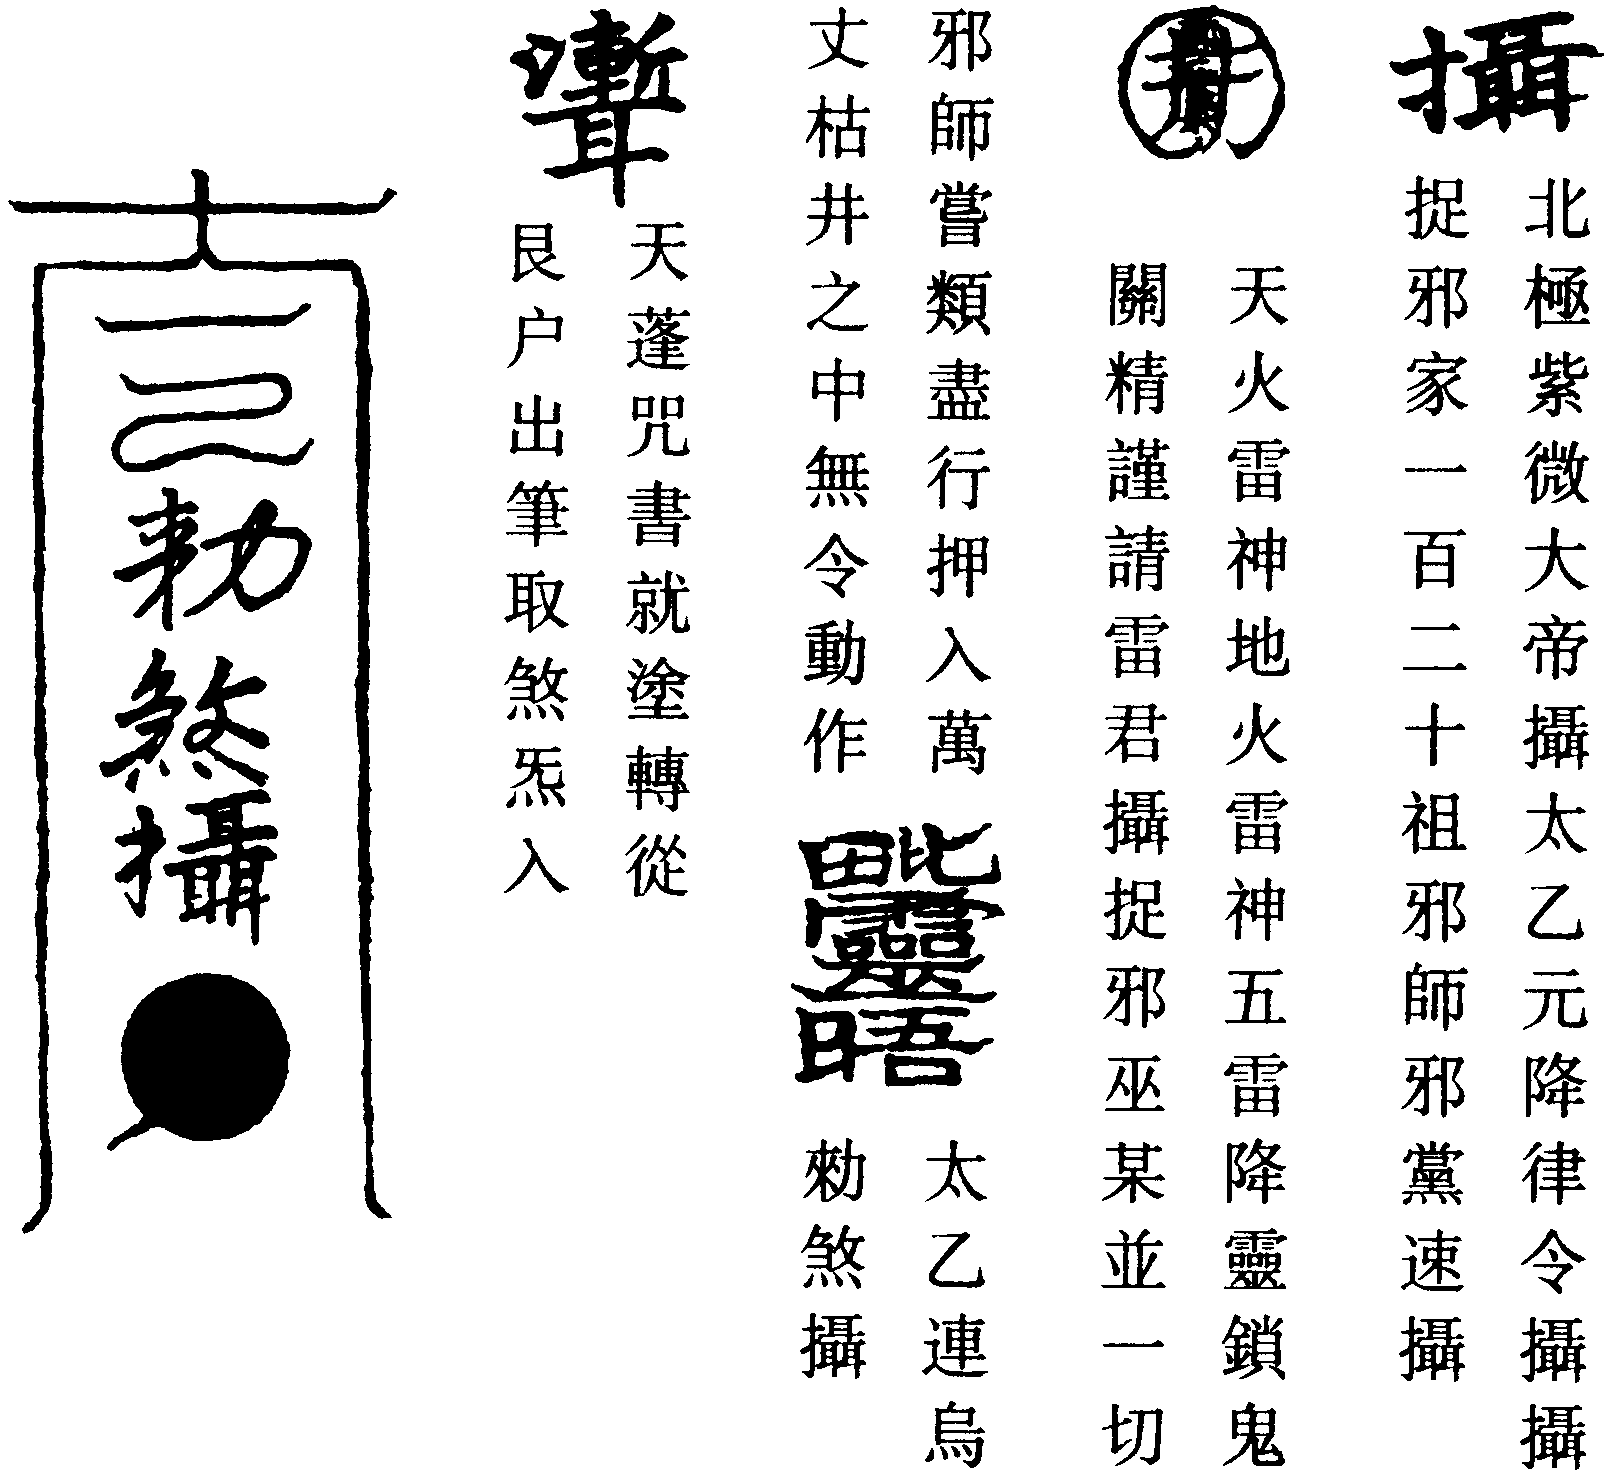 攝
北極紫微大帝攝太乙元降律令攝攝
捉邪家一百二十祖邪師邪黨速攝
天火雷神地火雷神五雷降靈鎖鬼
關精謹請雷君攝捉邪巫某並一切
邪師嘗類盡行押入萬
丈枯井之中無令動作
太乙連烏
勑煞攝
聻
天蓬咒書就塗轉從
艮户出筆取煞炁入
勅煞攝